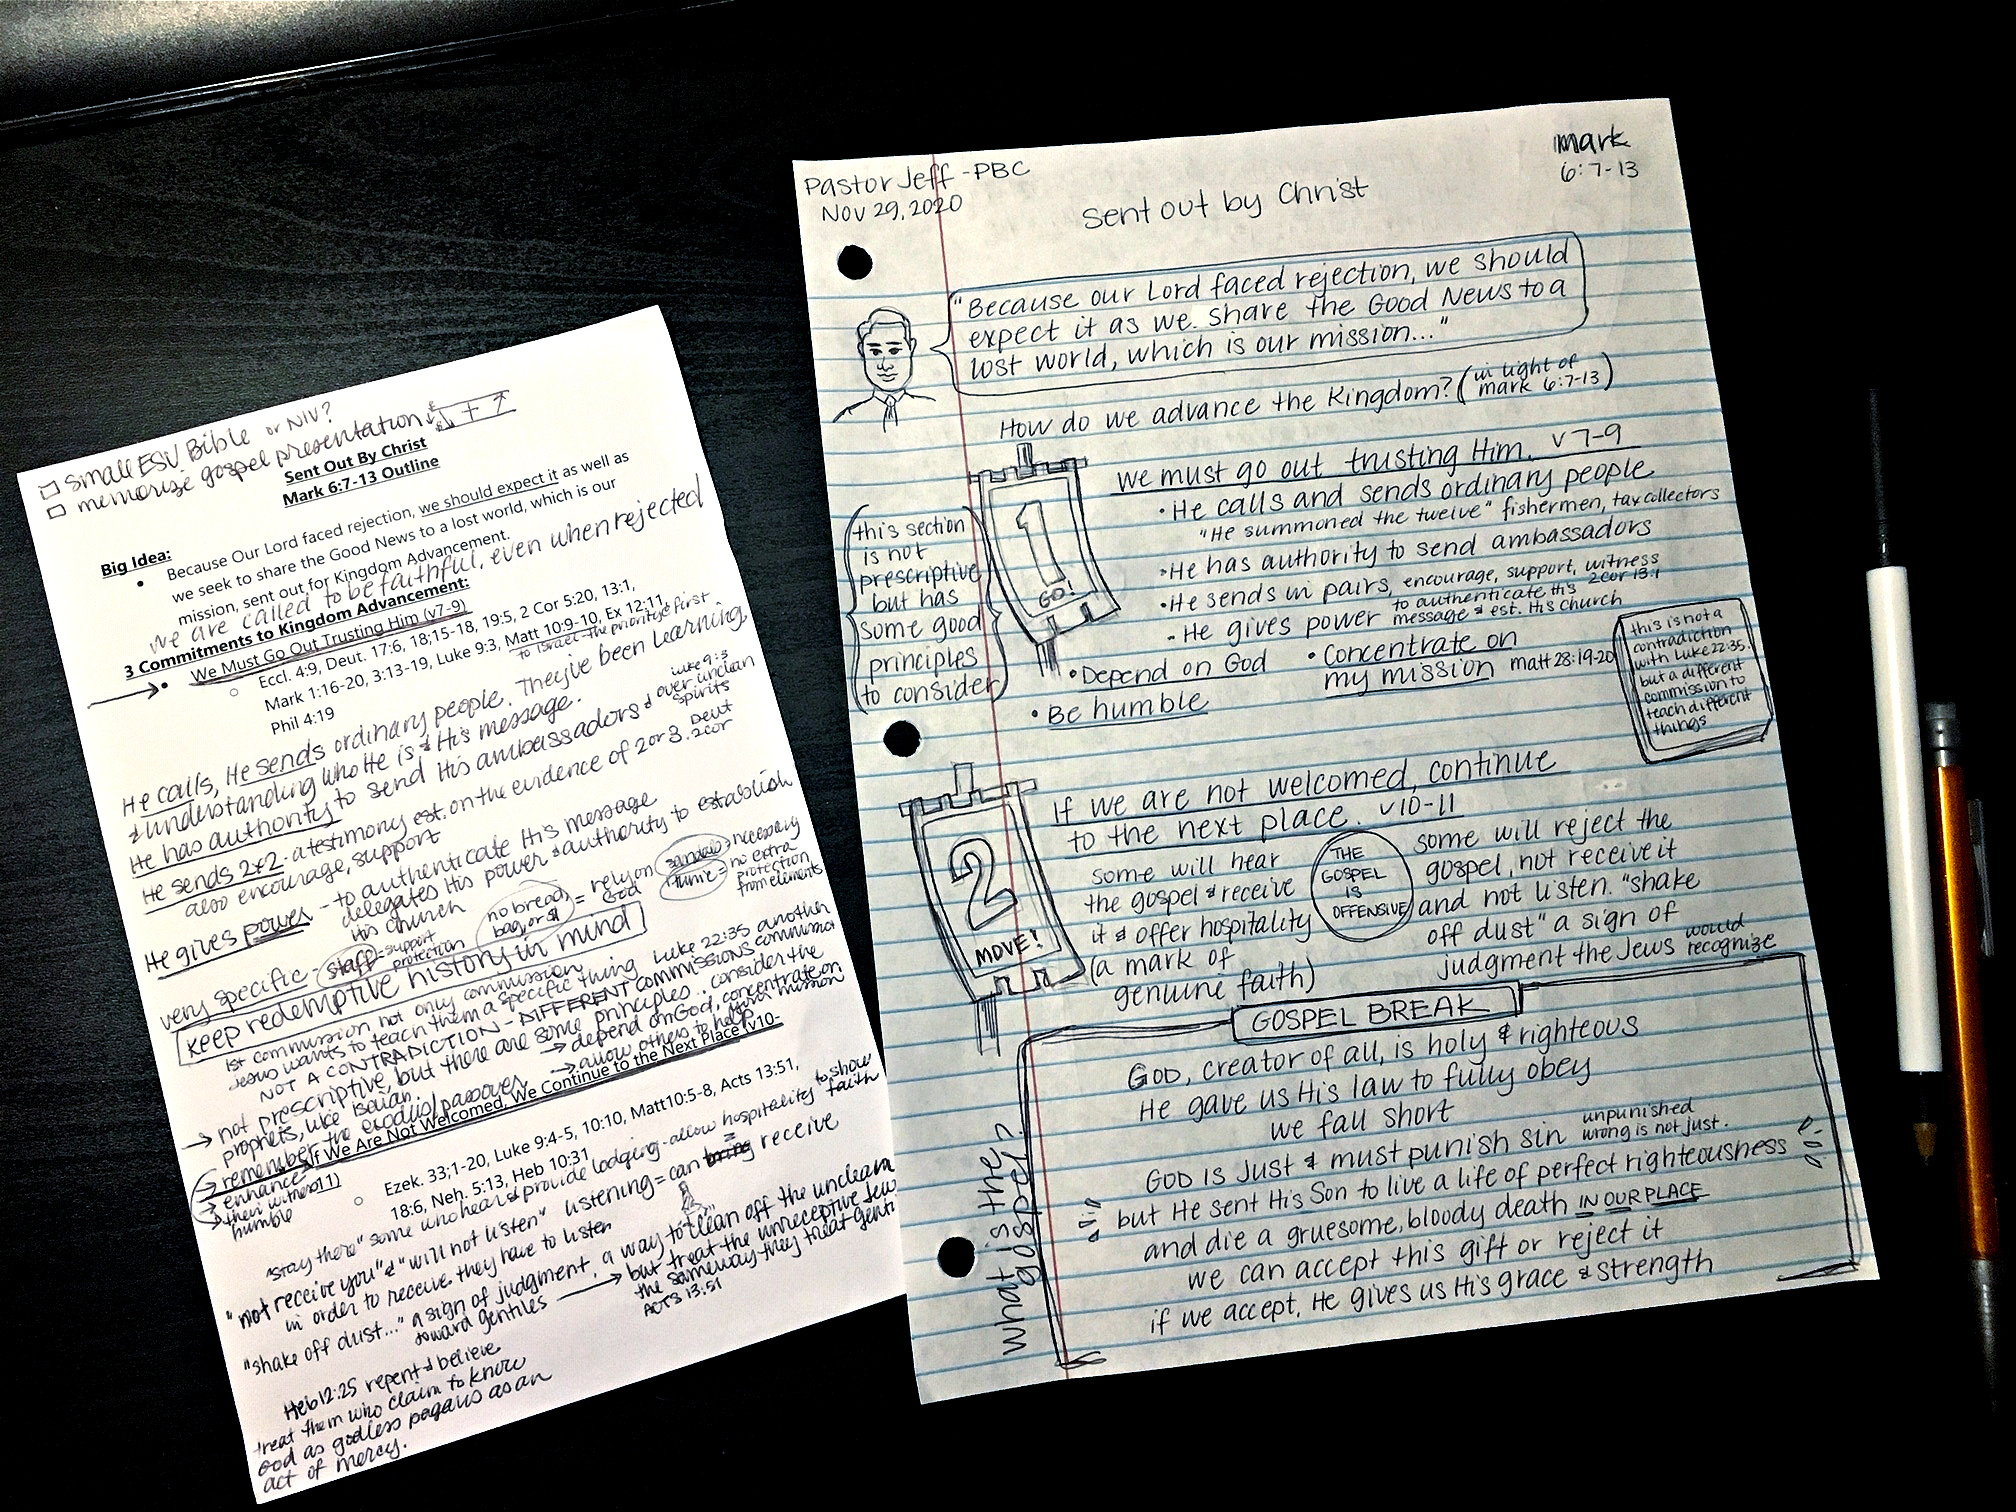 ☐ small ESV Bible or NIV?
☐ memorize gospel presentation
Sent Out By Christ
Mark 6:7-13 Outline
Big Idea:
• Because Our Lord faced rejection, we should expect it as well as
we seek to share the Good News to a lost world, which is our
mission, sent out for Kingdom Advancement.
we are called to be faithful, even when rejected
3 Commitments to Kingdom Advancement:
• We Must Go Out Trusting Him (v7-9)
○ Eccl. 4:9, Deut. 17:6, 18;15-18, 19:5, 2 Cor 5:20, 13:1,
Mark 1:16-20, 3:13-19, Luke 9:3, Matt 10:9-10, Ex 12:11,
to Israel - the priority & first
Phil 4:19
He calls, He sends ordinary people. They've been learning
& understanding who He is & His message.
He has authority to send His ambassadors & over unclean spirits
Luke 9:3
He sends 2x2 - a testimony est. on the evidence of 2 or 3. Deut 2cor
also encourage, support
He gives power - to authenticate His message
delegates His power & authority to establish
His church
very specific - staff = support protection
no bread, bag, or $ = rely on God
sandals = necessary
tunic = no extra protection from elements
keep redemptive history in mind
1st commission, not only commission
Jesus wants to teach them a specific thing Luke 22:35 another
NOT A CONTRADICTION - DIFFERENT COMMISSIONS communicat
→ not prescriptive, but there are some principles.. consider the
prophets, like Isaiah.
→ depend on God, concentrate on your mission
→ allow others to help
remember the exodus/passover
→ enhance
→ their witness
humble
If We Are Not Welcomed, We Continue to the Next Place (v10-
11)
○ Ezek. 33;1-20, Luke 9:4-5, 10:10, Matt10:5-8, Acts 13:51,
18:6, Neh. 5:13, Heb 10:31
"stay there" some who hear & provide lodging - allow hospitality to show faith
"not receive you" & "will not listen" listening = can receive
in order to receive, they have to listen
"shake off dust..." a sign of judgment, a way to "clean off the unclean"
toward gentiles → but treat the unreceptive Jew
the same way they treat genti
ACTS 13:51
Heb 12:25 repent & believe
treat them who claim to know
God as godless pagans as an
act of mercy.
Pastor Jeff - PBC
Nov 29, 2020
mark
6:7-13
Sent out by Christ
"Because our Lord faced rejection, we should
expect it as we share the Good News to a
lost world, which is our mission..."
How do we advance the Kingdom? (in light of mark 6:7-13)
1
GO!
we must go out trusting Him. v 7-9
• He calls and sends ordinary people
"He summoned the twelve" fishermen, tax collectors
• He has authority to send ambassadors
• He sends in pairs, encourage, support, witness 2cor 13:1
• He gives power to authenticate His message & est. His church
(this section
is not
prescriptive
but has
some good
principles
to consider)
• Depend on God
• Concentrate on
my mission matt 28:19-20
• Be humble
this is not a
contradiction
with Luke 22:35.
but a different
commission to
teach different
things
2
MOVE!
If we are not welcomed, continue
to the next place. v10-11
some will hear
the gospel & receive
it & offer hospitality
(a mark of
genuine faith)
THE
GOSPEL
IS
OFFENSIVE
some will reject the
gospel, not receive it
and not listen. "shake
off dust" a sign of
judgment the Jews would recognize
GOSPEL BREAK
what is the
gospel?
GOD, creator of all, is holy & righteous
He gave us His law to fully obey
we fall short
GOD is just & must punish sin unpunished wrong is not just.
but He sent His Son to live a life of perfect righteousness
and die a gruesome, bloody death IN OUR PLACE
we can accept this gift or reject it
if we accept, He gives us His grace & strength